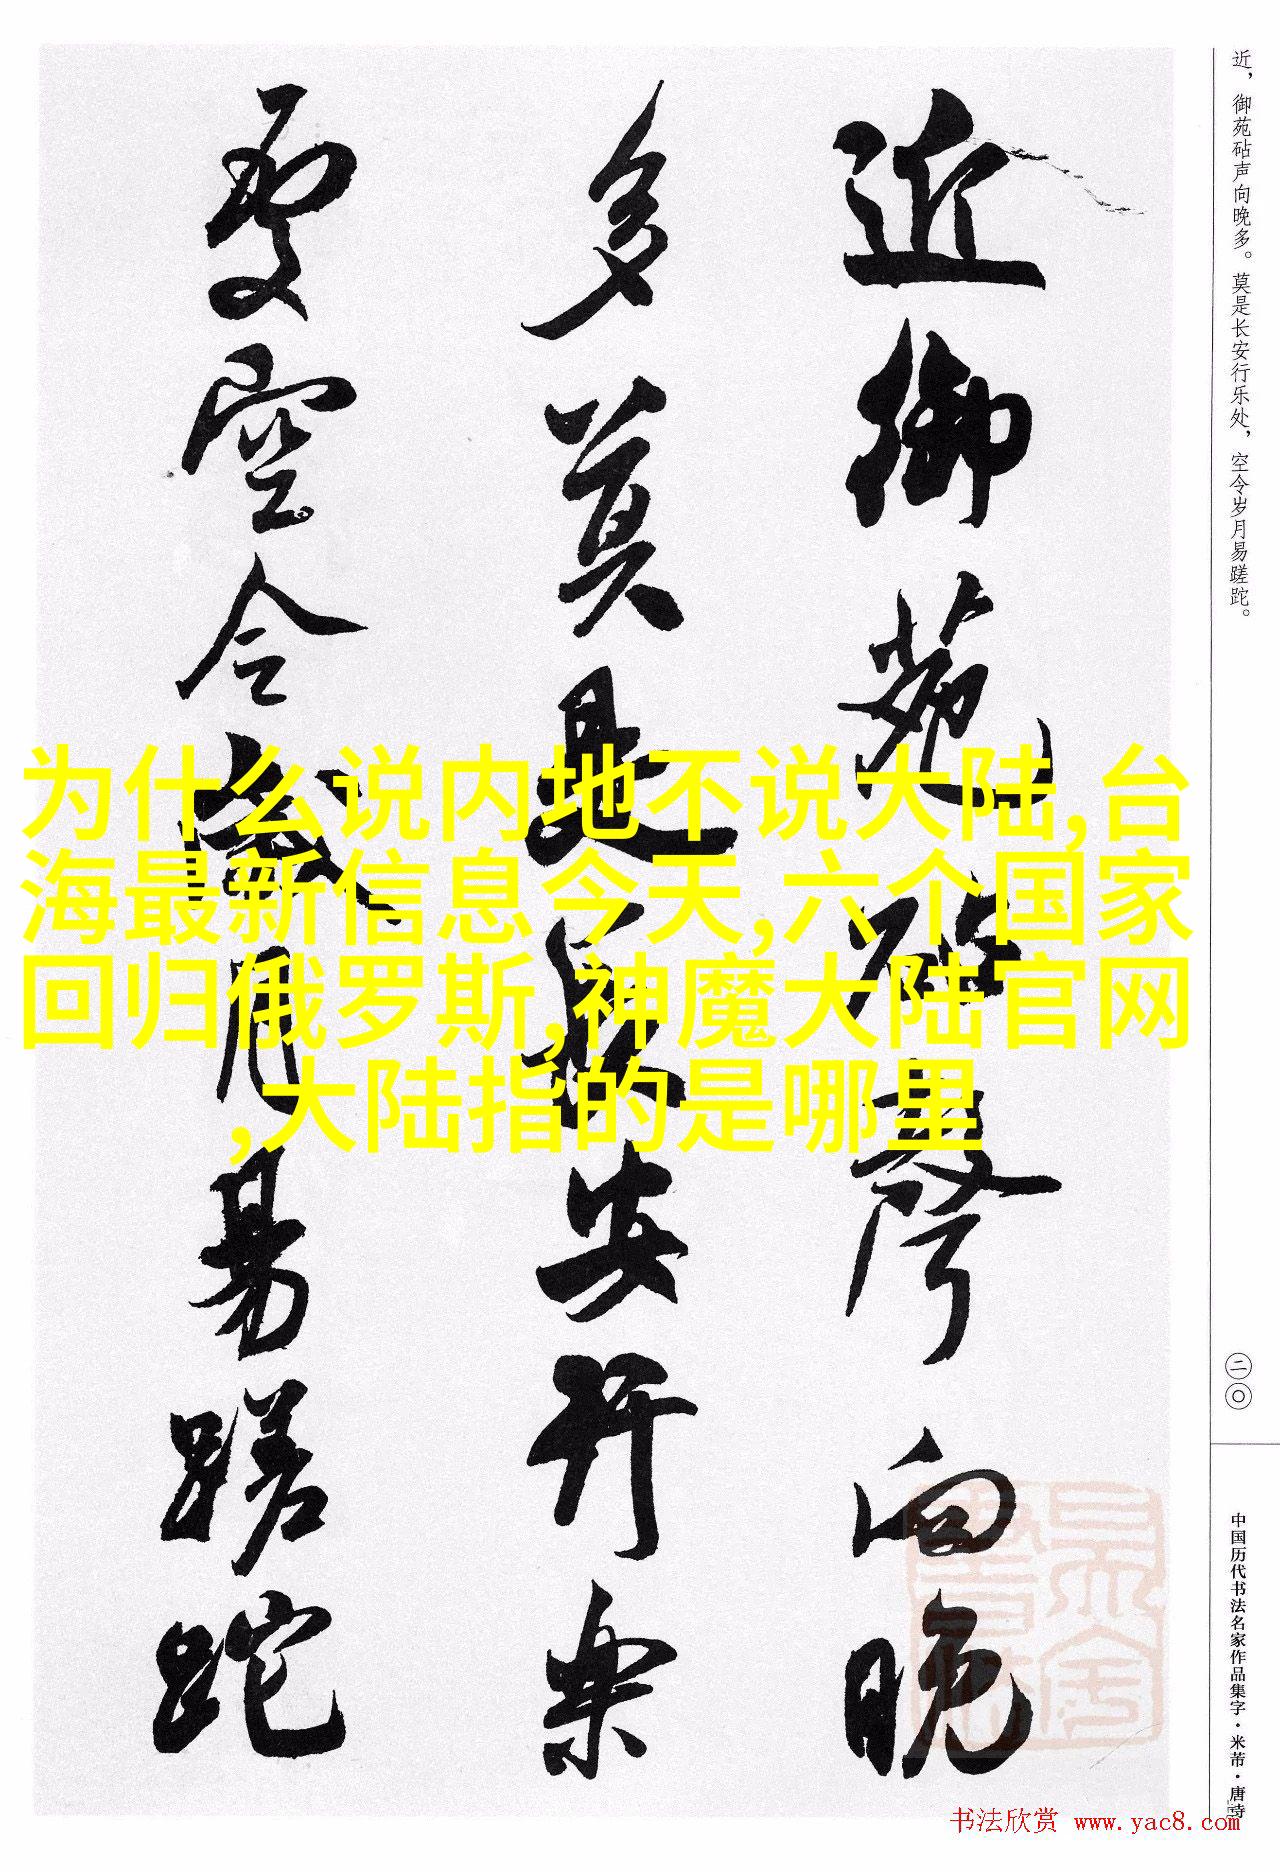 近御苑砧声向晚
多莫是长安行乐
处空令岁月易蹉跎
近，御苑砧声向晚多。莫是长安行乐处，空令岁月易蹉跎。
二〇
中国历代书法名家作品集字·米芾·唐诗
为什么说内地不说大陆,台
海最新信息今天,六个国家
回归俄罗斯,神魔大陆官网
,大陆指的是哪里
书法欣赏 www.yac8.com